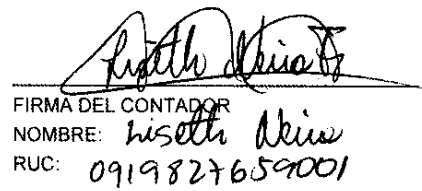 Lisetth Neira
FIRMA DEL CONTADOR
NOMBRE: Lisetth Neira
RUC: 0919827659001